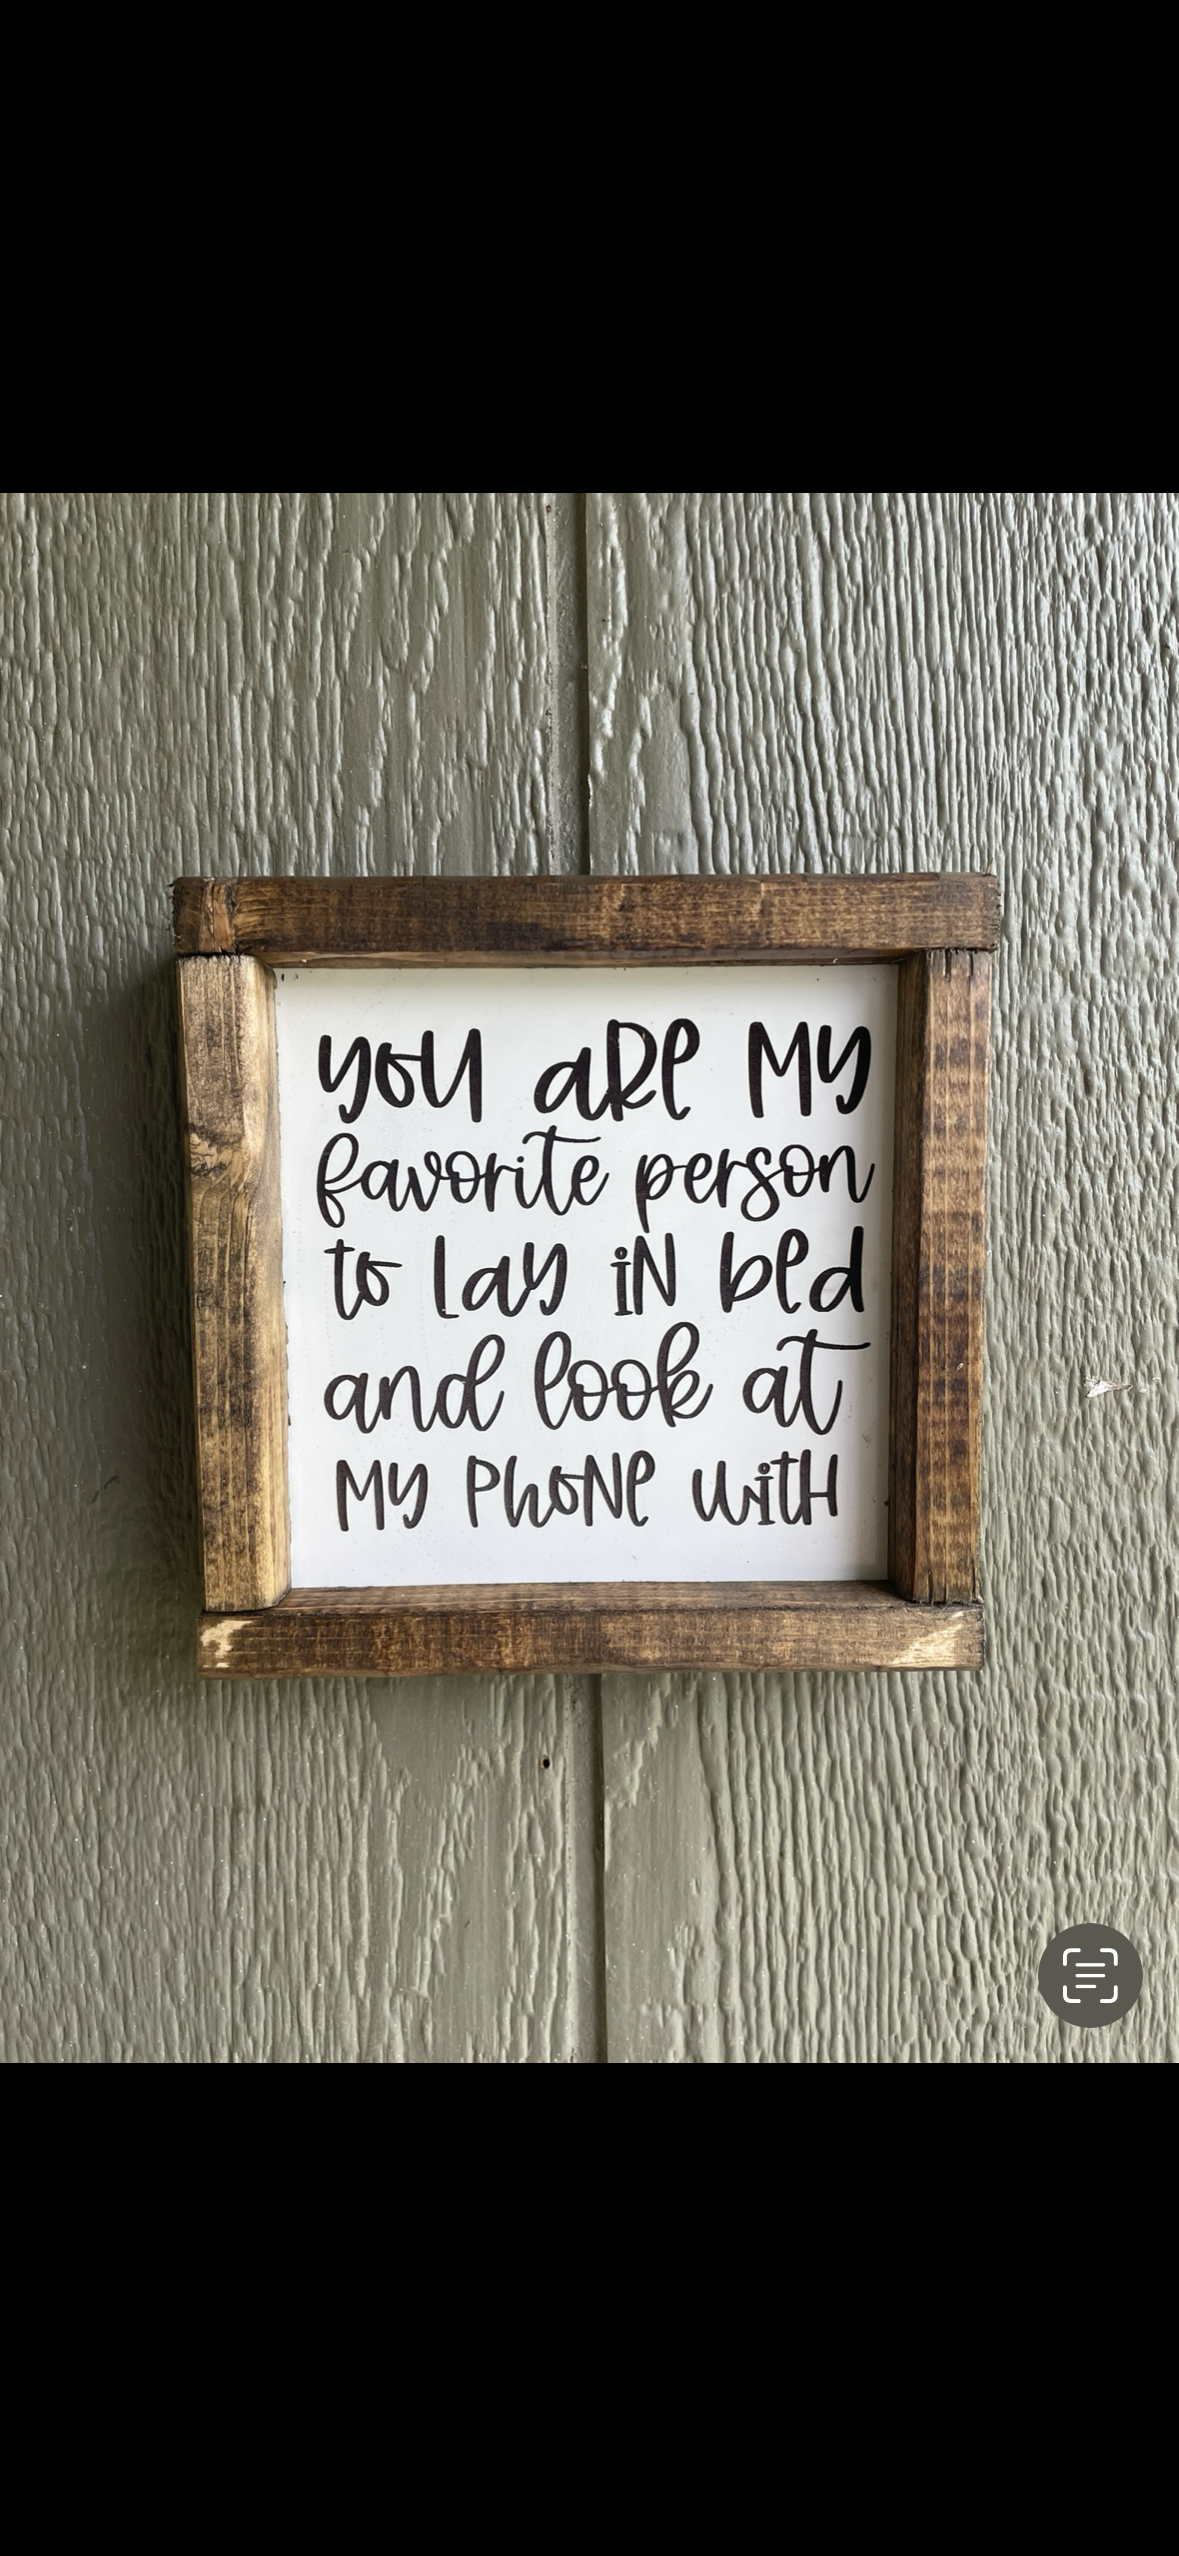 you are my
favorite person
to lay in bed
and look at
my phone with